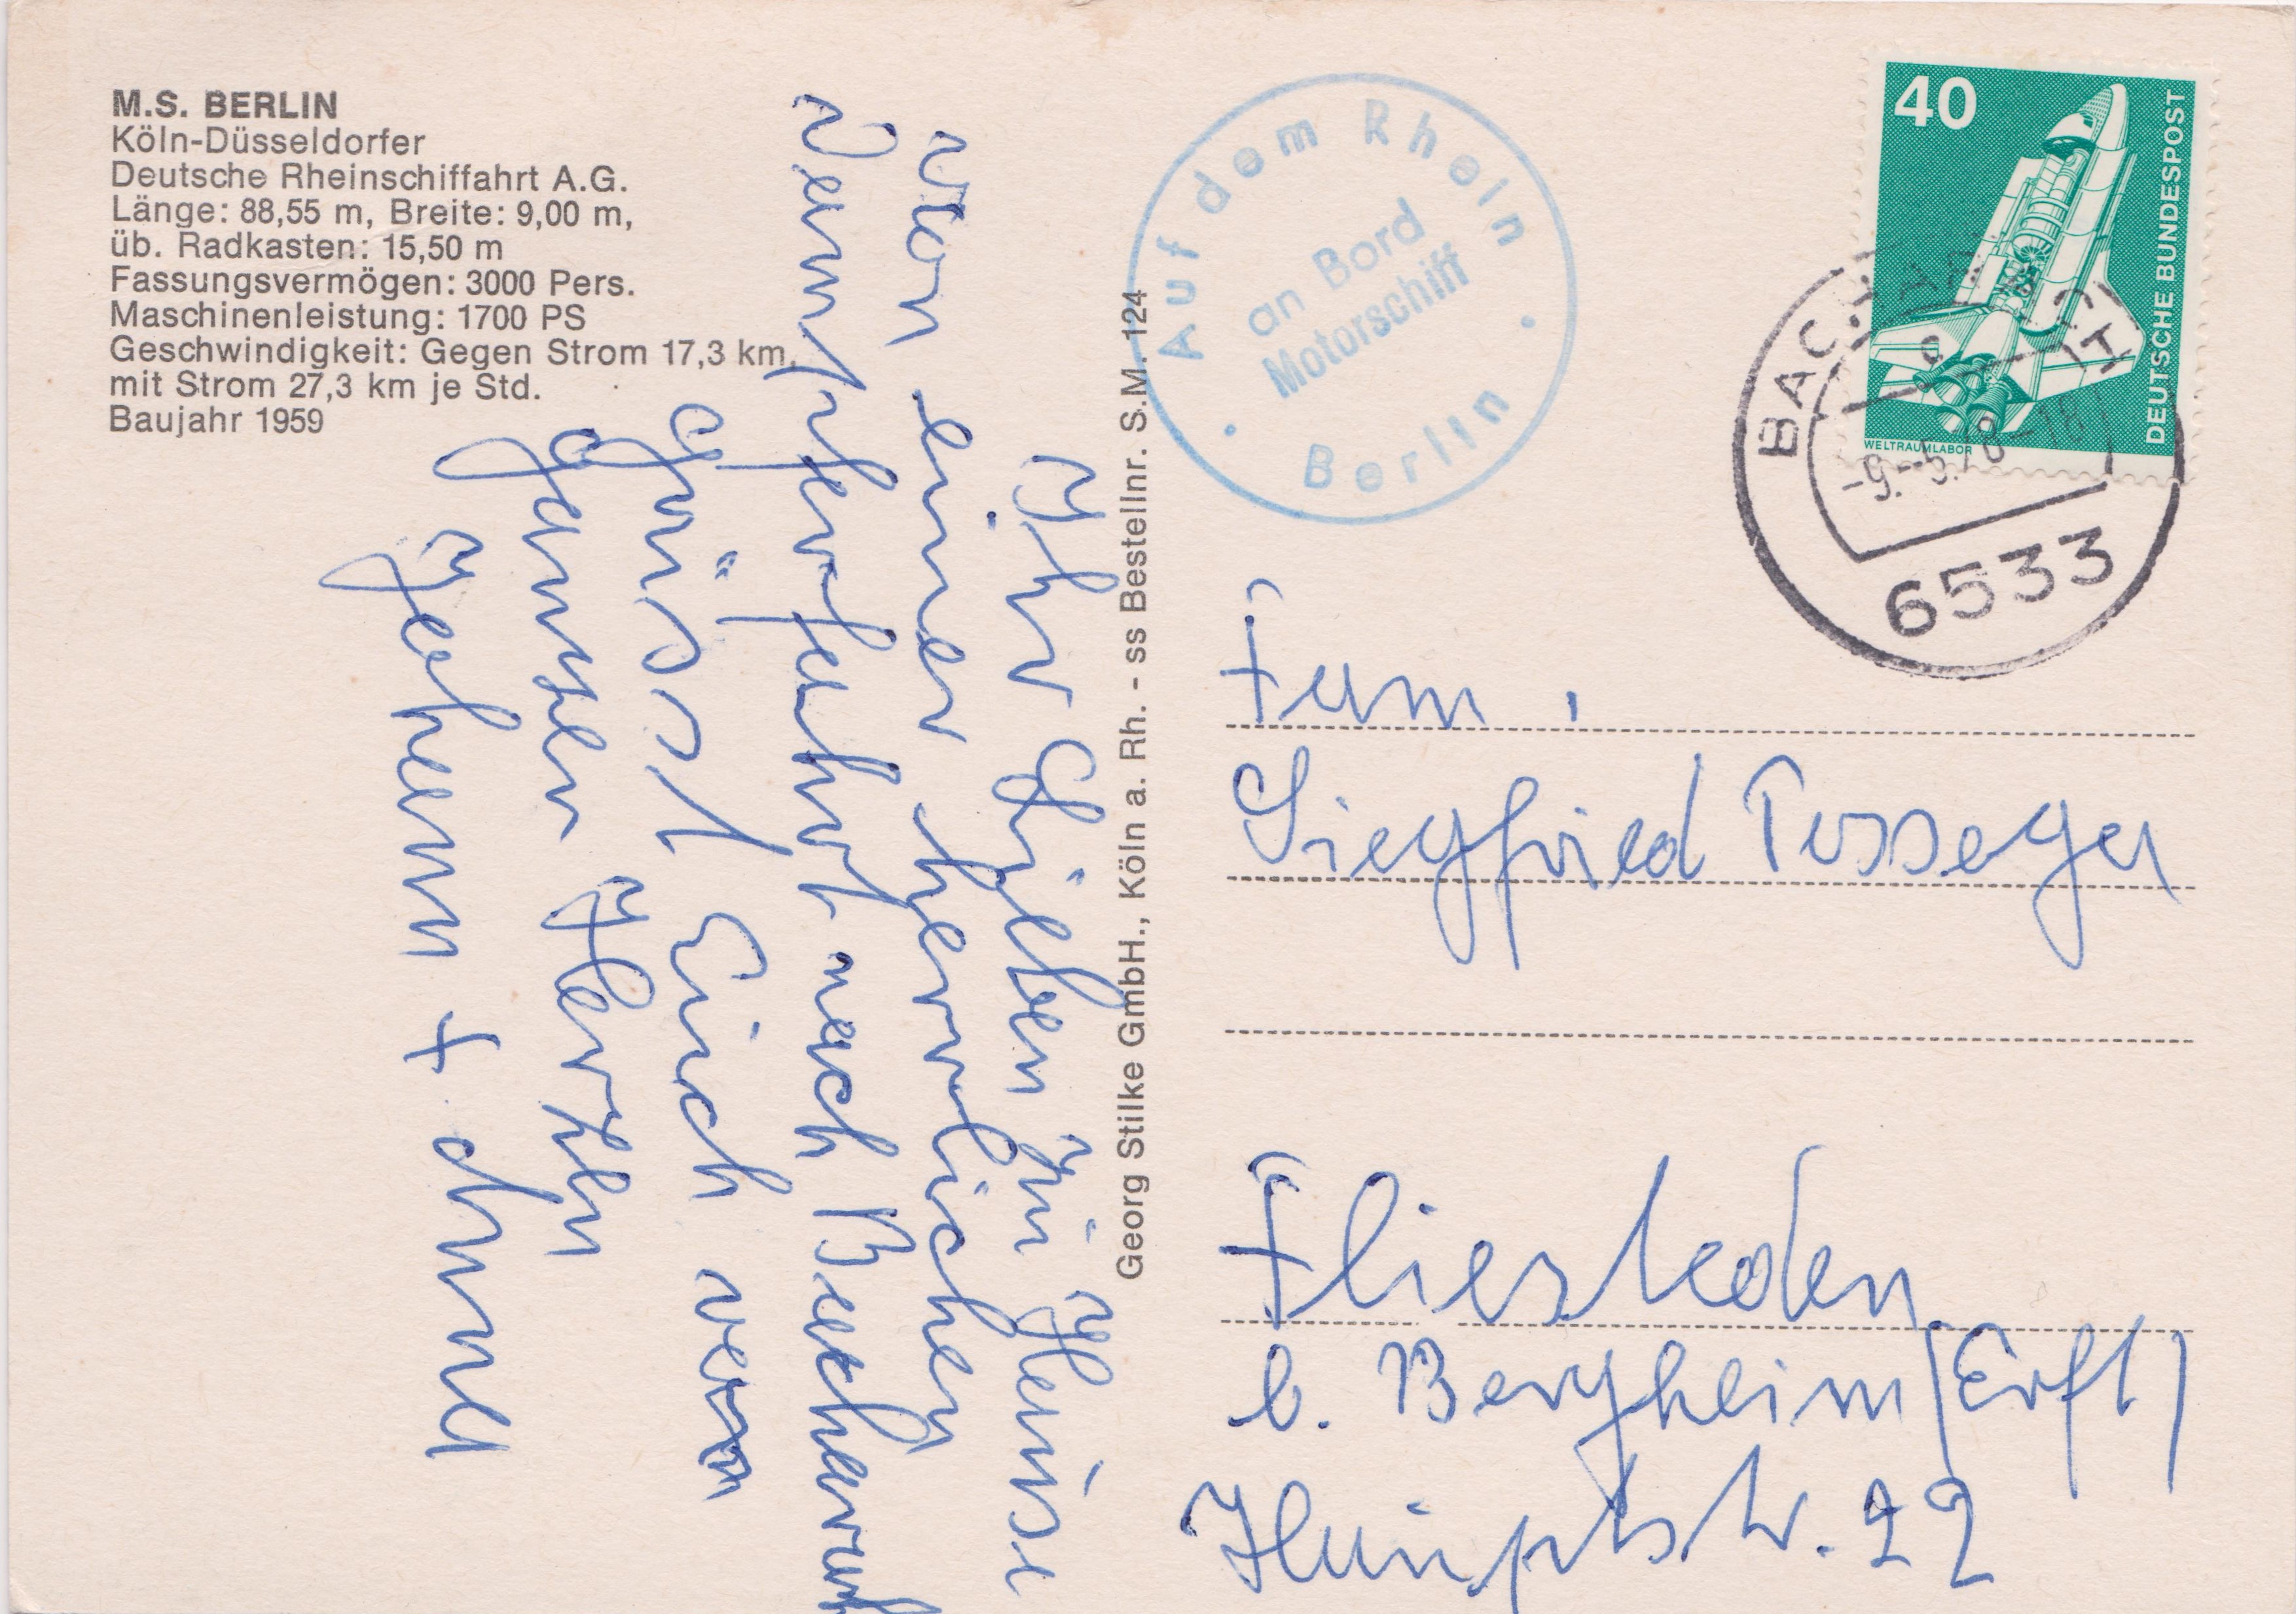 M.S. BERLIN
Köln-Düsseldorfer
Deutsche Rheinschiffahrt A.G.
Länge: 88,55 m, Breite: 9,00 m,
üb. Radkasten: 15,50 m
Fassungsvermögen: 3000 Pers.
Maschinenleistung: 1700 PS
Geschwindigkeit: Gegen Strom 17,3 km,
mit Strom 27,3 km je Std.
Baujahr 1959
Ihr Lieben zu Hause
von einer herrlichen
Dampferfahrt nach Bacharach
grüsst Euch von
ganzen Herzen
Johann + Anna
Georg Stilke GmbH., Köln a. Rh. - ss Bestellnr. S.M. 124
Auf dem Rhein
an Bord
Motorschiff
Berlin
40
DEUTSCHE BUNDESPOST
WELTRAUMLABOR
BACHARACH 1
-9.-5.78-18
6533
Fam.
Siegfried
Fliesteden
b. Bergheim/Erft/
Hauptstr. 22